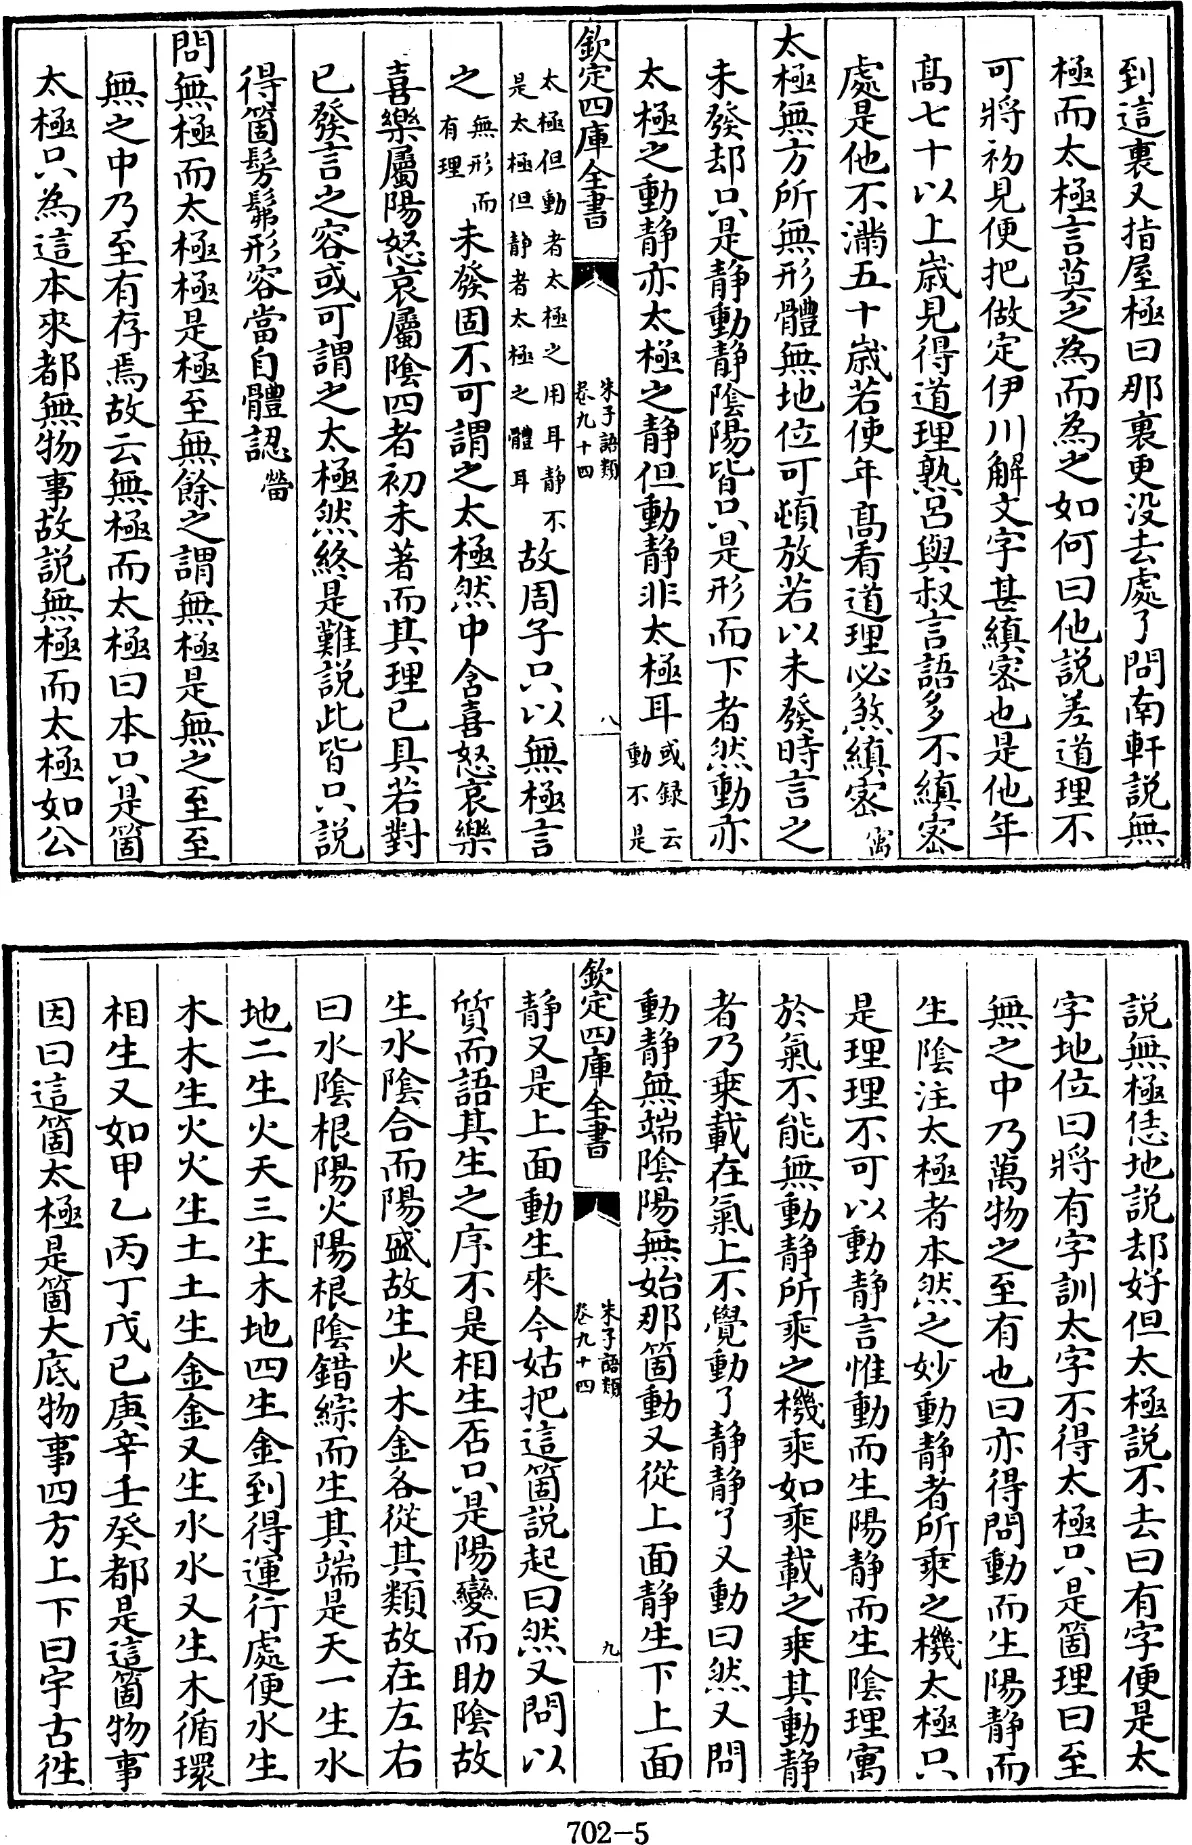 到這裏又指屋極曰那裏更没去處了問南軒説無
極而太極言莫之為而為之如何曰他説差道理不
可將初見便把做定伊川解文字甚縝宻也是他年
高七十以上歳見得道理熟呂與叔言語多不縝宻
處是他不滿五十歳若使年高看道理必煞縝宻㝢
太極無方所無形體無地位可頓放若以未發時言之
未發却只是静動静陰陽皆只是形而下者然動亦
太極之動静亦太極之静但動静非太極耳或録云動不是
欽定四庫全書
朱子語類
卷九十四
八
太極但動者太極之用耳静不是太極但静者太極之體耳故周子只以無極言
之無形而有理未發固不可謂之太極然中含喜怒哀樂
喜樂屬陽怒哀屬陰四者初未著而其理已具若對
已發言之容或可謂之太極然終是難説此皆只説
得箇髣髴形容當自體認㽦
問無極而太極極是極至無餘之謂無極是無之至至
無之中乃至有存焉故云無極而太極曰本只是箇
太極只為這本來都無物事故説無極而太極如公
説無極恁地説却好但太極説不去曰有字便是太
字地位曰將有字訓太字不得太極只是箇理曰至
無之中乃萬物之至有也曰亦得問動而生陽静而
生陰注太極者本然之妙動静者所乘之機太極只
是理理不可以動静言惟動而生陽静而生陰理寓
於氣不能無動静所乘之機乘如乘載之乘其動静
者乃乘載在氣上不覺動了静静了又動曰然又問
動静無端陰陽無始那箇動又從上面静生下上面
欽定四庫全書
朱子語類
卷九十四
九
静又是上面動生來今姑把這箇説起曰然又問以
質而語其生之序不是相生否只是陽變而助陰故
生水陰合而陽盛故生火木金各從其類故在左右
曰水陰根陽火陽根陰錯綜而生其端是天一生水
地二生火天三生木地四生金到得運行處便水生
木木生火火生土土生金金又生水水又生木循環
相生又如甲乙丙丁戊己庚辛壬癸都是這箇物事
因曰這箇太極是箇大底物事四方上下曰宇古往
702-5